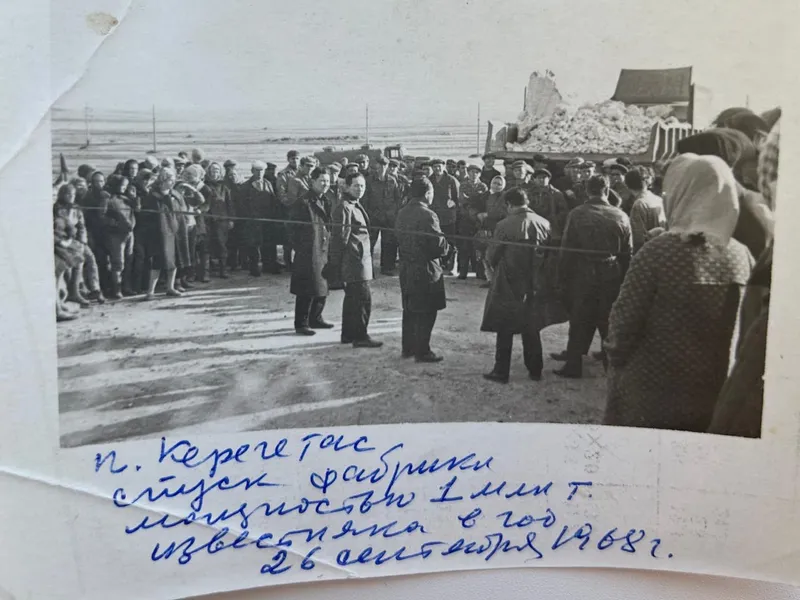 п. Керегетас
спуск фабрики
мощностью 1 млн т.
известняка в год
26 сентября 1968 г.